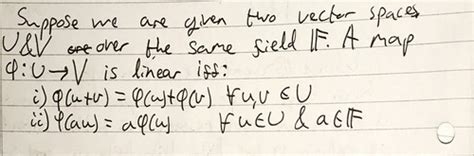 Suppose we are given two vector spaces
U&V over the same field F. A map
φ:U→V is linear iff:
i) φ(u+v) = φ(u)+φ(v) ∀u,v ∈ U
ii) φ(au) = aφ(u) ∀u∈U & a∈F